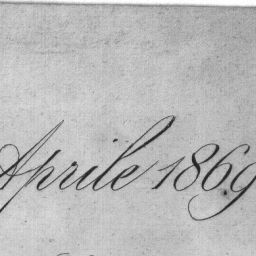 Aprile 1869